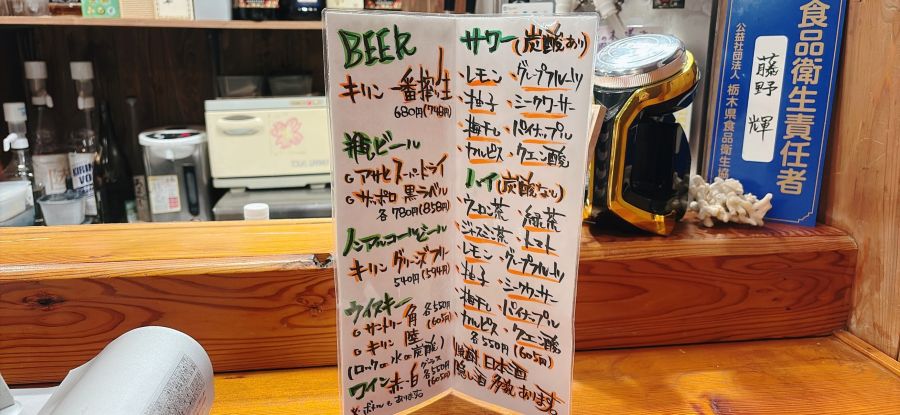 BEER
キリン 一番搾り生
680円(748円)
瓶ビール
アサヒスーパードライ
サッポロ 黒ラベル
各780円(858円)
ノンアルコールビール
キリン グリーンズフリー
540円(594円)
ウイスキー 各550円
サントリー角 (605円)
キリン 陸
(ロック or 水 or 炭酸)
ワイン 赤・白 グラス 各550円
(605円)
※ボトルもあります。
サワー(炭酸あり)
・レモン ・グレープフルーツ
・柚子 ・シークワーサー
・梅干し ・パイナップル
・カルピス ・クエン酸
ハイ(炭酸なし)
・ウーロン茶 ・緑茶
・ジャスミン茶 ・トマト
・レモン ・グレープフルーツ
・柚子 ・シークワーサー
・梅干し ・パイナップル
・カルピス ・クエン酸
各550円(605円)
焼酎、日本酒
隠し酒 多数あります。
食品衛生責任者
藤野 輝
公益社団法人 栃木県食品衛生協